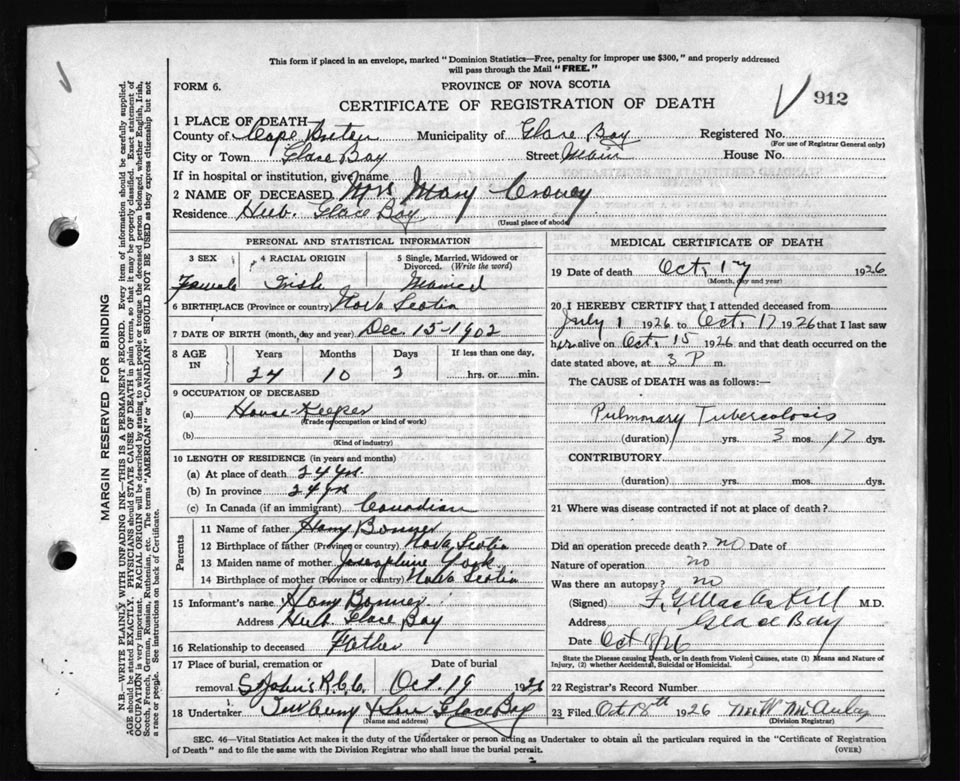 This form if placed in an envelope, marked "Dominion Statistics—Free, penalty for improper use $300," and properly addressed
will pass through the Mail "FREE."
FORM 6.
PROVINCE OF NOVA SCOTIA
CERTIFICATE OF REGISTRATION OF DEATH
912
1 PLACE OF DEATH
County of Cape Breton Municipality of Glace Bay Registered No.
(For use of Registrar General only)
City or Town Glace Bay Street Main House No.
If in hospital or institution, give name
2 NAME OF DECEASED Mrs Mary Croney
Residence Hub. Glace Bay
(Usual place of abode)
PERSONAL AND STATISTICAL INFORMATION
3 SEX
Female
4 RACIAL ORIGIN
Irish
5 Single, Married, Widowed or
Divorced. (Write the word)
Married
6 BIRTHPLACE (Province or country) Nova Scotia
7 DATE OF BIRTH (month, day and year) Dec. 15-1902
8 AGE
IN
Years Months Days If less than one day,
24 10 2 hrs. or min.
9 OCCUPATION OF DECEASED
(a) House-Keeper
(Trade occupation or kind of work)
(b)
(Kind of industry)
10 LENGTH OF RESIDENCE (in years and months)
(a) At place of death 24 yrs.
(b) In province 24 yrs
(c) In Canada (if an immigrant) Canadian
Parents
11 Name of father Harry Bonner
12 Birthplace of father (Province or country) Nova Scotia
13 Maiden name of mother Josephine York
14 Birthplace of mother (Province or country) Nova Scotia
15 Informant's name Harry Bonner
Address Hub Glace Bay
16 Relationship to deceased Father
17 Place of burial, cremation or Date of burial
removal St John's R.C.C. Oct. 19 1926
18 Undertaker & Son Glace Bay
(Name and address)
MEDICAL CERTIFICATE OF DEATH
19 Date of death Oct. 17 1926
(Month, day and year)
20 I HEREBY CERTIFY that I attended deceased from
July 1 1926 to Oct. 17 1926 that I last saw
her alive on Oct. 15 1926 and that death occurred on the
date stated above, at 3 P m.
The CAUSE of DEATH was as follows:
Pulmonary Tuberculosis
(duration) yrs. 3 mos. 17 dys.
CONTRIBUTORY
(duration) yrs. mos. dys.
21 Where was disease contracted if not at place of death?
Did an operation precede death? no Date of
Nature of operation no
Was there an autopsy? no
(Signed) M.D.
Address Glace Bay
Date Oct 18/26
State the Disease causing Death, or in death from Violent Causes, state (1) Means and Nature of
Injury, (2) whether Accidental, Suicidal or Homicidal.
22 Registrar's Record Number
23 Filed Oct 18th 1926
(Division Registrar)
SEC. 46—Vital Statistics Act makes it the duty of the Undertaker or person acting as Undertaker to obtain all the particulars required in the "Certificate of Registration
of Death" and to file the same with the Division Registrar who shall issue the burial permit.
(OVER)
MARGIN RESERVED FOR BINDING
N.B.—WRITE PLAINLY WITH UNFADING INK—THIS IS A PERMANENT RECORD. Every item of information should be carefully supplied.
AGE should be stated EXACTLY. PHYSICIANS should STATE CAUSE OF DEATH in plain terms, so that it may be properly classified. Exact statement of
OCCUPATION is very important. RACIAL ORIGIN will be described by stating to what people or tongue the deceased person belonged, whether English, Irish,
Scotch, French, German, Russian, Ruthenian, etc. The terms "AMERICAN" or "CANADIAN" SHOULD NOT BE USED as they express citizenship but not
a race or people. See instructions on back of Certificate.